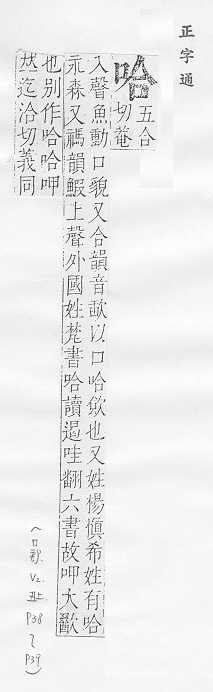 正字通
哈
五合
切菴
入聲魚動口貌又合韻音歃以口哈飲也又姓楊慎希姓有哈
永森又禡韻鰕上聲外國姓梵書哈讀遏哇翻六書故呷大歠
也別作哈哈呷
𠀤迄洽切義同
(口部. V2. 丑上. P38 ~ P39)